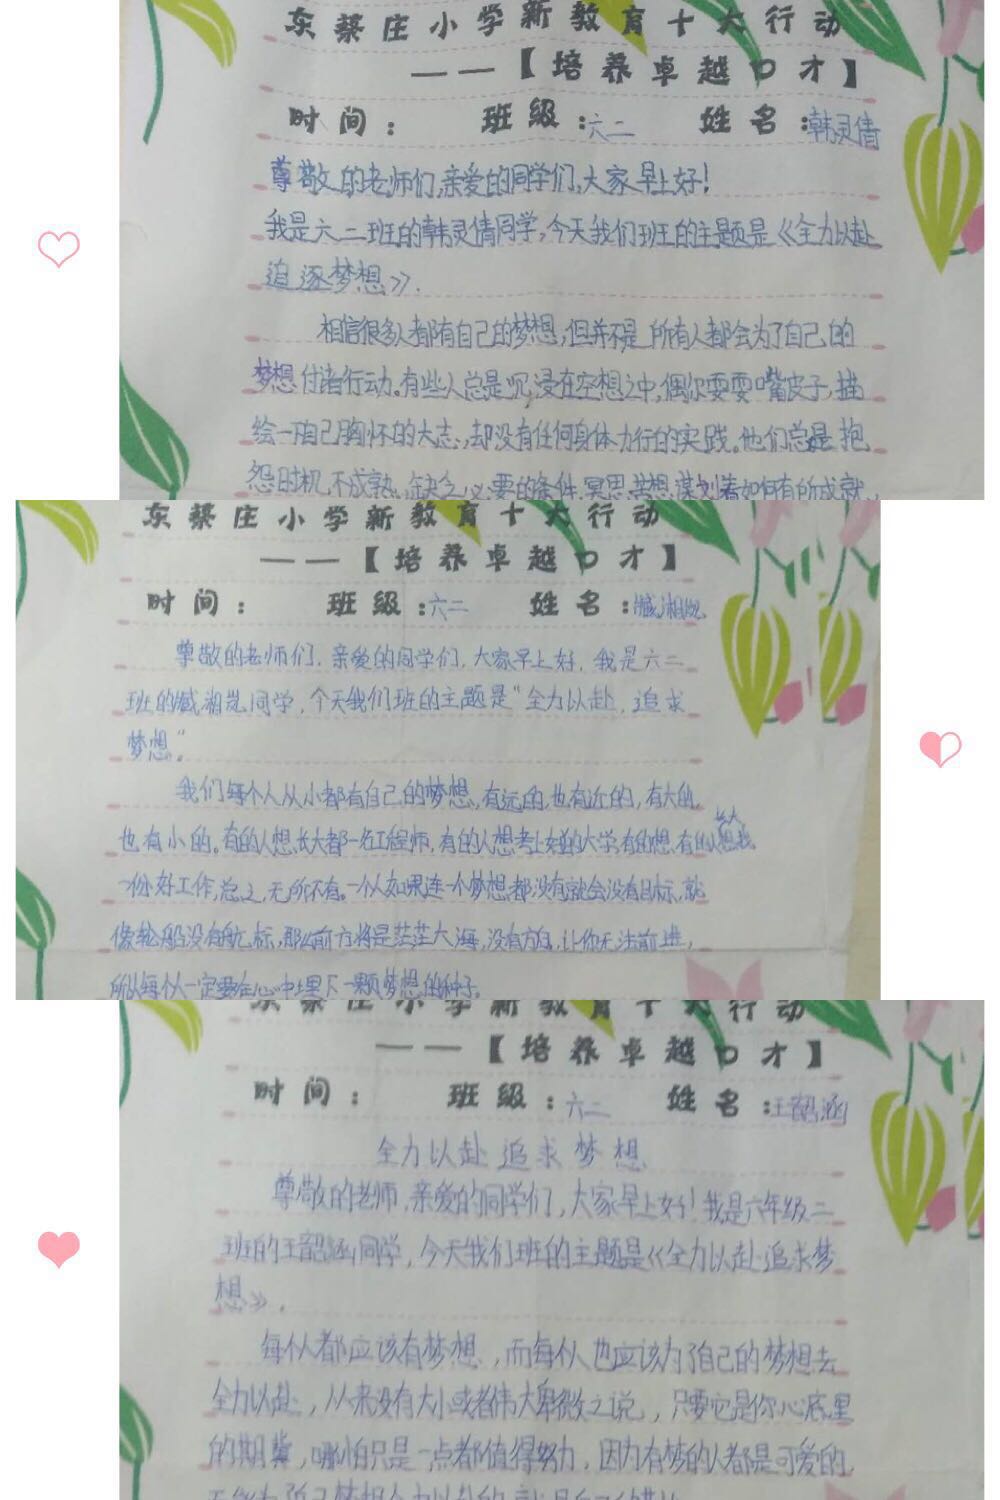 东蔡庄小学新教育十大行动
——【培养卓越口才】
时间： 班级：六二 姓名：韩灵倩
尊敬的老师们,亲爱的同学们,大家早上好!
我是六二班的韩灵倩同学,今天我们班的主题是《全力以赴
追逐梦想》.
相信很多人都有自己的梦想,但并不是所有人都会为了自己的
梦想付诸行动。有些人总是沉浸在空想之中,偶尔耍耍嘴皮子,描
绘一下自己胸怀的大志,却没有任何身体力行的实践。他们总是抱
怨时机不成熟,缺乏必要的条件,冥思苦想谋划着如何有所成就,
东蔡庄小学新教育十大行动
——【培养卓越口才】
时间： 班级：六二 姓名：臧湘
尊敬的老师们,亲爱的同学们,大家早上好,我是六二
班的臧湘同学,今天我们班的主题是“全力以赴,追求
梦想”。
我们每个人从小都有自己的梦想,有远的,也有近的,有大的,
也有小的。有的人想长大都一名工程师,有的人想考上好的大学,有的想,有的人长大想找
一份好工作,总之,无所不有。一个人如果连一个梦想都没有就会没有目标,就
像轮船没有航标,那么前方将是茫茫大海,没有方向,让你无法前进,
所以每个人一定要在心中埋下一颗梦想的种子。
东蔡庄小学新教育十大行动
——【培养卓越口才】
时间： 班级：六二 姓名：王韶涵
全力以赴 追求梦想
尊敬的老师,亲爱的同学们,大家早上好!我是六年级二
班的王韶涵同学,今天我们班的主题是《全力以赴追求梦
想》.
每个人都应该有梦想,而每个人也应该为了自己的梦想去
全力以赴,从来没有大小或者伟大卑微之说,只要它是你心底里
的期冀,哪怕只是一点都值得努力,因为有梦的人都是可爱的,